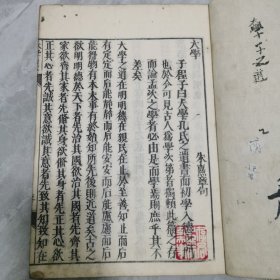 大學
朱熹章句
子程子曰大學孔氏之遺書而初學入德之門
也於今可見古人為學次第者獨賴此篇之存
而論孟次之學者必由是而學焉則庶乎其不
差矣
大學之道在明明德在親民在止於至善知止而后
有定定而后能靜靜而后能安安而后能慮慮而后
能得物有本末事有終始知所先後則近道矣古之
欲明明德於天下者先治其國欲治其國者先齊其
家欲齊其家者先脩其身欲脩其身者先正其心欲
正其心者先誠其意欲誠其意者先致其知致知在